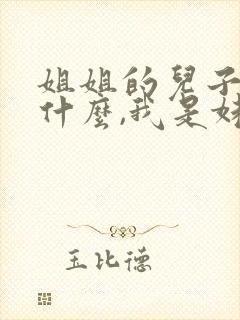 姐姐的兒子
什麼,我是妹
玉比德